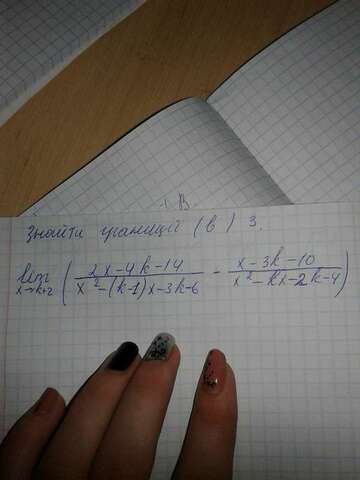 1 В.
Знайти границі (в) 3.
lim x→k+2 ( (2x-4k-14)/(x²-(k-1)x-3k-6) - (x-3k-10)/(x²-kx-2k-4) )